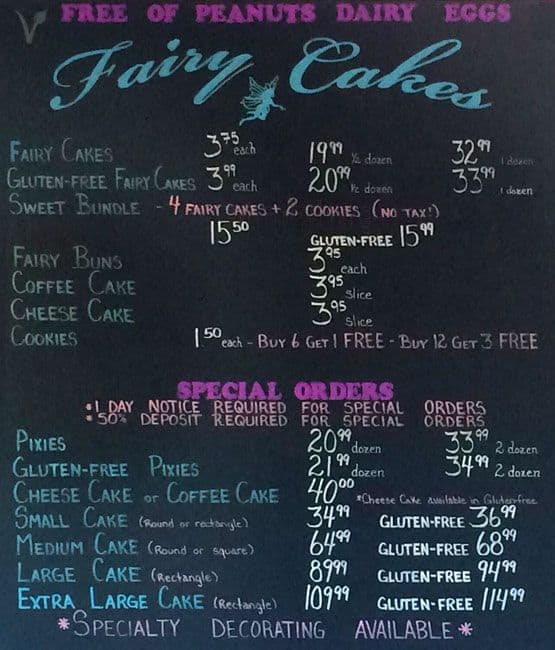 V FREE OF PEANUTS DAIRY EGGS
Fairy Cakes
FAIRY CAKES 3.75 each 19.99 ½ dozen 32.99 1 dozen
GLUTEN-FREE FAIRY CAKES 3.99 each 20.99 ½ dozen 33.99 1 dozen
SWEET BUNDLE - 4 FAIRY CAKES + 2 COOKIES (NO TAX!)
15.50 GLUTEN-FREE 15.99
FAIRY BUNS 3.95 each
COFFEE CAKE 3.95 slice
CHEESE CAKE 3.95 slice
COOKIES 1.50 each - BUY 6 GET 1 FREE - BUY 12 GET 3 FREE
SPECIAL ORDERS
*1 DAY NOTICE REQUIRED FOR SPECIAL ORDERS
*50% DEPOSIT REQUIRED FOR SPECIAL ORDERS
PIXIES 20.99 dozen 33.99 2 dozen
GLUTEN-FREE PIXIES 21.99 dozen 34.99 2 dozen
CHEESE CAKE OR COFFEE CAKE 40.00 *Cheese Cake available in Gluten-free
SMALL CAKE (Round or rectangle) 34.99 GLUTEN-FREE 36.99
MEDIUM CAKE (Round or square) 64.99 GLUTEN-FREE 68.99
LARGE CAKE (Rectangle) 89.99 GLUTEN-FREE 94.99
EXTRA LARGE CAKE (Rectangle) 109.99 GLUTEN-FREE 114.99
*SPECIALTY DECORATING AVAILABLE*